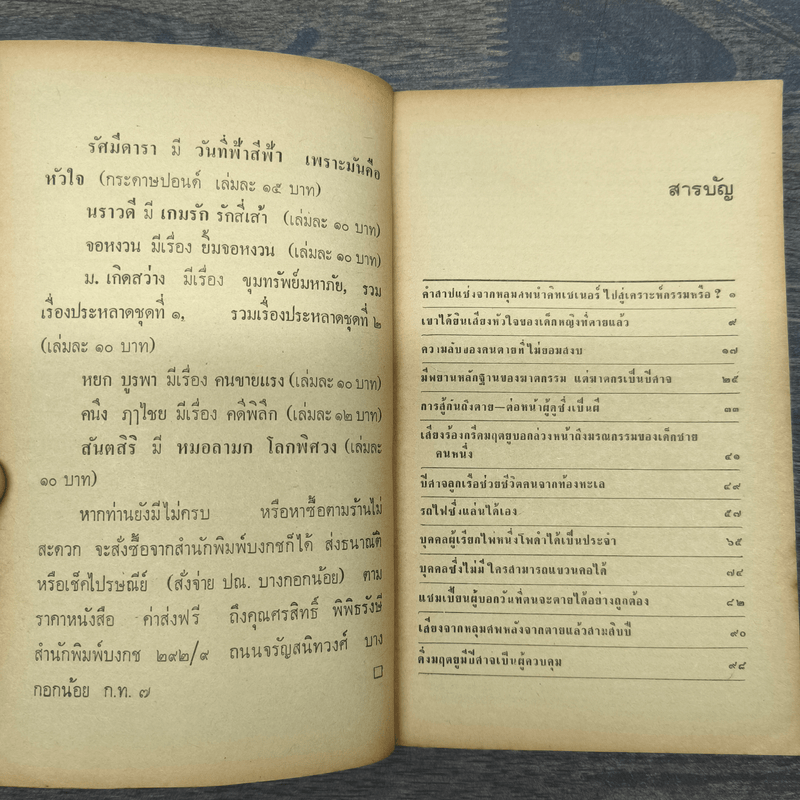 รัศมีดารา มี วันที่ฟ้าสีฟ้า เพราะมันคือ
หัวใจ (กระดาษปอนด์ เล่มละ ๑๕ บาท)
นราวดี มี เกมรัก รักสี่เส้า (เล่มละ ๑๐ บาท)
จอหงวน มีเรื่อง ยิ้มจอหงวน (เล่มละ ๑๐ บาท)
ม. เกิดสว่าง มีเรื่อง ขุมทรัพย์มหาภัย, รวม
เรื่องประหลาดชุดที่ ๑, รวมเรื่องประหลาดชุดที่ ๒
(เล่มละ ๑๐ บาท)
หยก บูรพา มีเรื่อง คนขายแรง (เล่มละ ๑๐ บาท)
คนึง ฦๅไชย มีเรื่อง คดีพิลึก (เล่มละ ๑๒ บาท)
สันตสิริ มี หมอลามก โลกพิศวง (เล่มละ
๑๐ บาท)
หากท่านยังมีไม่ครบ หรือหาซื้อตามร้านไม่
สะดวก จะสั่งซื้อจากสำนักพิมพ์บงกชก็ได้ ส่งธนาณัติ
หรือเช็คไปรษณีย์ (สั่งจ่าย ปณ. บางกอกน้อย) ตาม
ราคาหนังสือ ค่าส่งฟรี ถึงคุณศรสิทธิ์ พิพิธรังษี
สำนักพิมพ์บงกช ๒๙๒/๙ ถนนจรัญสนิทวงศ์ บาง
กอกน้อย ก.ท. ๗
สารบัญ
คำสาปแช่งจากหลุมศพนำดิทเชเนอร์ ไปสู่เคราะห์กรรมหรือ ? ๑
เขาได้ยินเสียงหัวใจของเด็กหญิงที่ตายแล้ว ๙
ความลับของคนตายที่ไม่ยอมสงบ ๑๗
มีพยานหลักฐานของฆาตกรรม แต่ฆาตกรเป็นปีศาจ ๒๕
การสู้กันถึงตาย—ต่อหน้าผู้ดูซึ่งเป็นผี ๓๓
เสียงร้องกรีดมฤตยูบอกล่วงหน้าถึงมรณกรรมของเด็กชาย
คนหนึ่ง ๔๑
ปีศาจลูกเรือช่วยชีวิตคนจากท้องทะเล ๔๙
รถไฟซึ่งแล่นได้เอง ๕๗
บุคคลผู้เรียกไพ่หนึ่งโพดำได้เป็นประจำ ๖๕
บุคคลซึ่งไม่มีใครสามารถแขวนคอได้ ๗๔
แชมเปี้ยนผู้บอกวันที่ตนจะตายได้อย่างถูกต้อง ๘๒
เสียงจากหลุมศพหลังจากตายแล้วสามสิบปี ๙๐
ดิ่งมฤตยูมีปีศาจเป็นผู้ควบคุม ๙๘